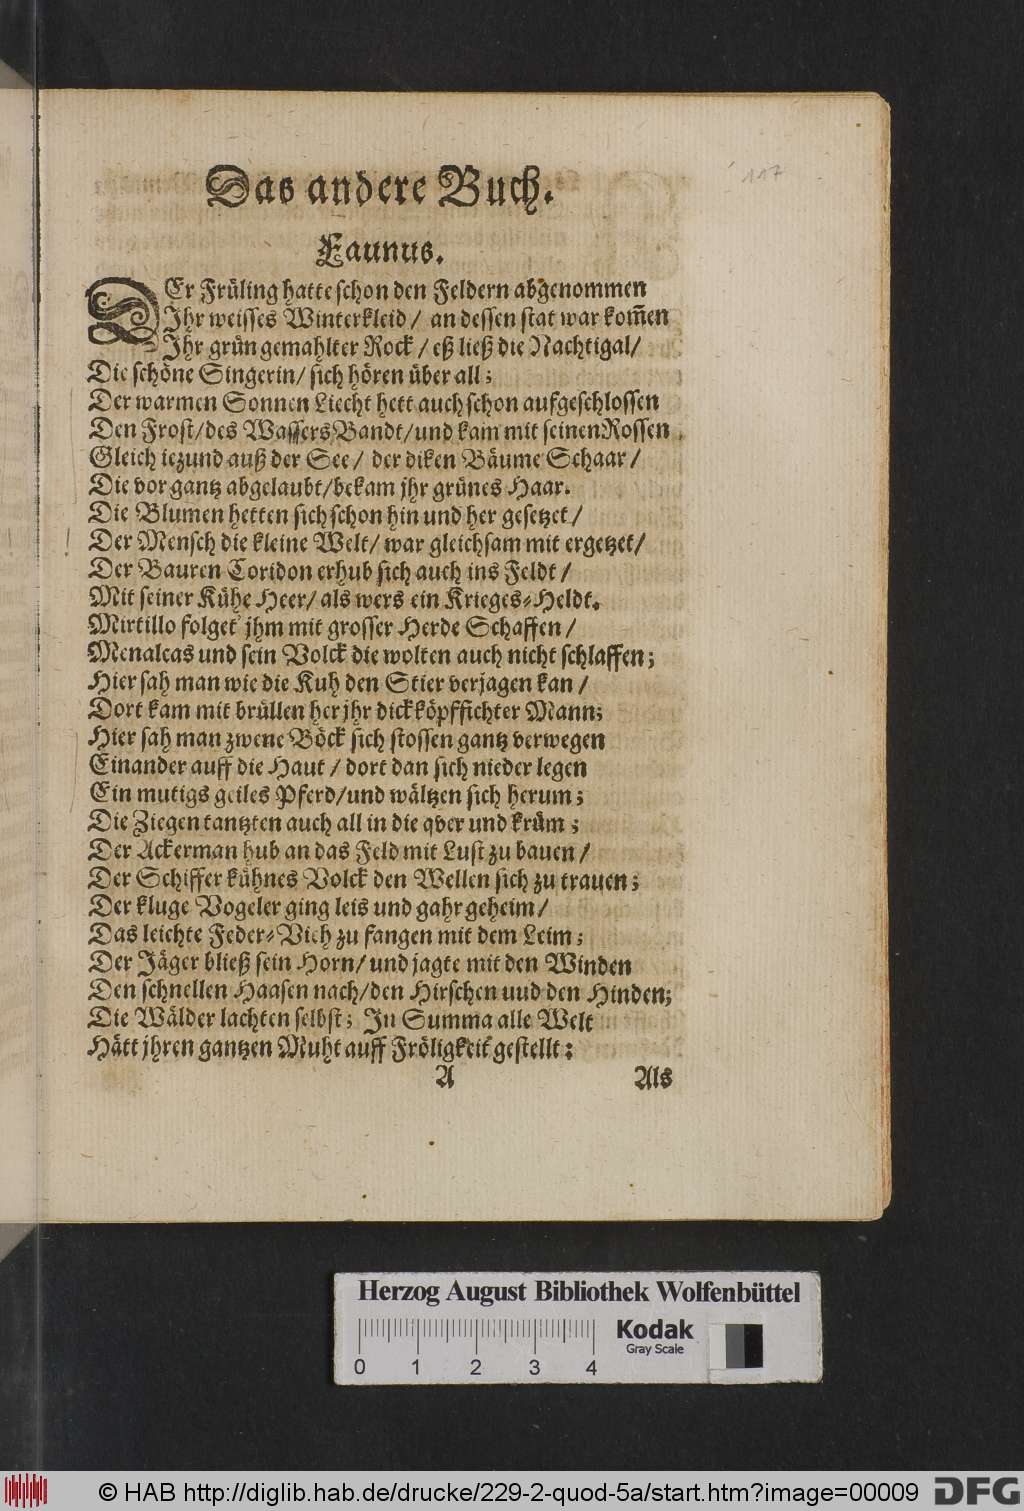 117
Das andere Buch.
Faunus.
DEr Früling hatte schon den Feldern abgenommen
Ihr weisses Winterkleid / an dessen stat war kom̃en
Ihr grün gemahlter Rock / eß ließ die Nachtigal/
Die schöne Singerin/ sich hören über all;
Der warmen Sonnen Liecht hett auch schon aufgeschlossen
Den Frost/des Wassers Bandt/und kam mit seinen Rossen
Gleich iezund auß der See/ der diken Bäume Schaar /
Die vor gantz abgelaubt/bekam jhr grünes Haar.
Die Blumen hetten sich schon hin und her gesetzet/
Der Mensch die kleine Welt/ war gleichsam mit ergetzet/
Der Bauren Coridon erhub sich auch ins Feldt /
Mit seiner Kühe Heer/ als wers ein Krieges-Heldt.
Mirtillo folget jhm mit grosser Herde Schaffen /
Menalcas und sein Volck die wolten auch nicht schlaffen;
Hier sah man wie die Kuh den Stier verjagen kan /
Dort kam mit brüllen her jhr dickköpffichter Mann;
Hier sah man zwene Böck sich stossen gantz verwegen
Einander auff die Haut / dort dan sich nieder legen
Ein mutigs geiles Pferd/und wältzen sich herum;
Die Ziegen tantzten auch all in die qver und krüm;
Der Ackerman hub an das Feld mit Lust zu bauen /
Der Schiffer kühnes Volck den Wellen sich zu trauen;
Der kluge Vogeler ging leis und gahr geheim/
Das leichte Feder-Vieh zu fangen mit dem Leim;
Der Jäger bließ sein Horn/ und jagte mit den Winden
Den schnellen Haasen nach/den Hirschen uud den Hinden;
Die Wälder lachten selbst; In Summa alle Welt
Hätt jhren gantzen Muht auff Fröligkeit gestellt:
A Als
Herzog August Bibliothek Wolfenbüttel
0 1 2 3 4
Kodak
Gray Scale
© HAB http://diglib.hab.de/drucke/229-2-quod-5a/start.htm?image=00009
DFG